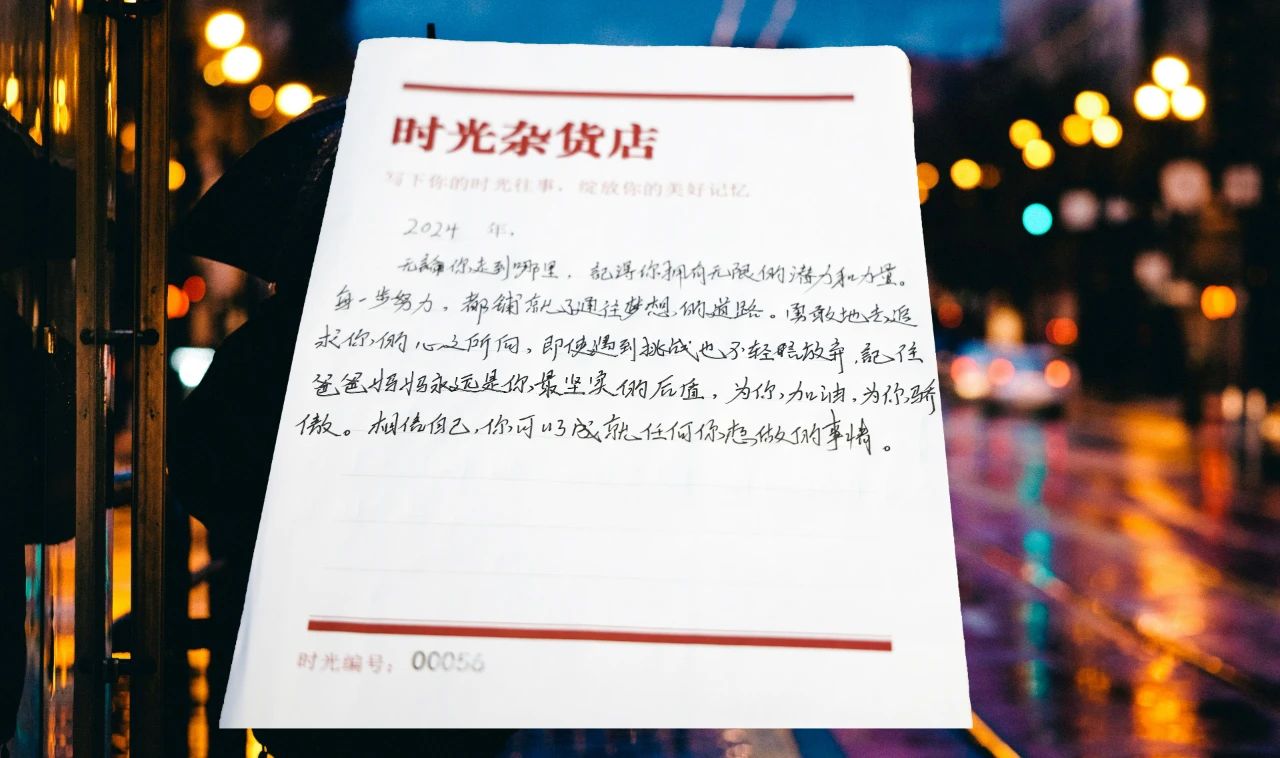 时光杂货店
写下你的时光往事，绽放你的美好记忆
2024 年.
无論你走到哪里，記得你拥有无限的潜力和力量。
每一步努力，都铺就了通往梦想的道路。勇敢地去追
求你的心之所向，即使遇到挑战也不轻易放弃，記住
爸爸妈妈永远是你最坚实的后盾，为你加油，为你骄
傲。相信自己，你可以成就任何你想做的事情。
时光编号： 00056